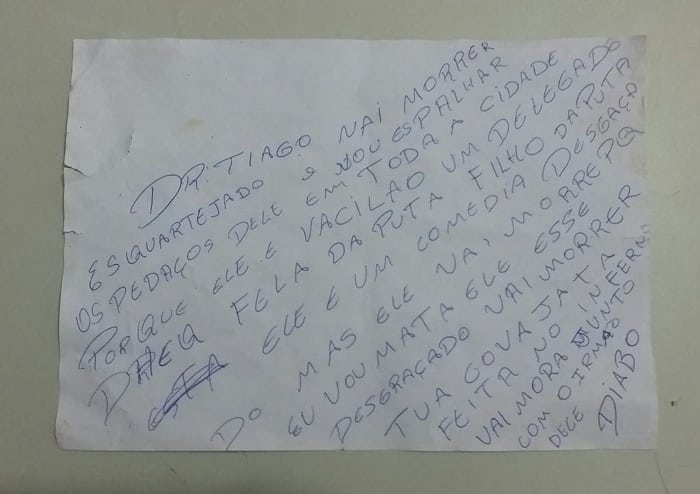 DR. TIAGO NAI MORRER
ESQUARTEJADO E VOU ESPALHAR
OS PEDAÇOS DELE EM TODA A CIDADE
PORQUE ELE E VACILAO UM DELEGADO
FELA DA PUTA FILHO DA PUTA
ELE E UM COMEDIA DESGAÇA
DO MAS ELE VAI MORRE PQ
EU VOU MATA ELE ESSE
DESGRAÇADO VAI MORRER
TUA COVA JA TA
FEITA NO INFERNO
VAI MORA JUNTO
COM O IRMAO
DECE DIABO